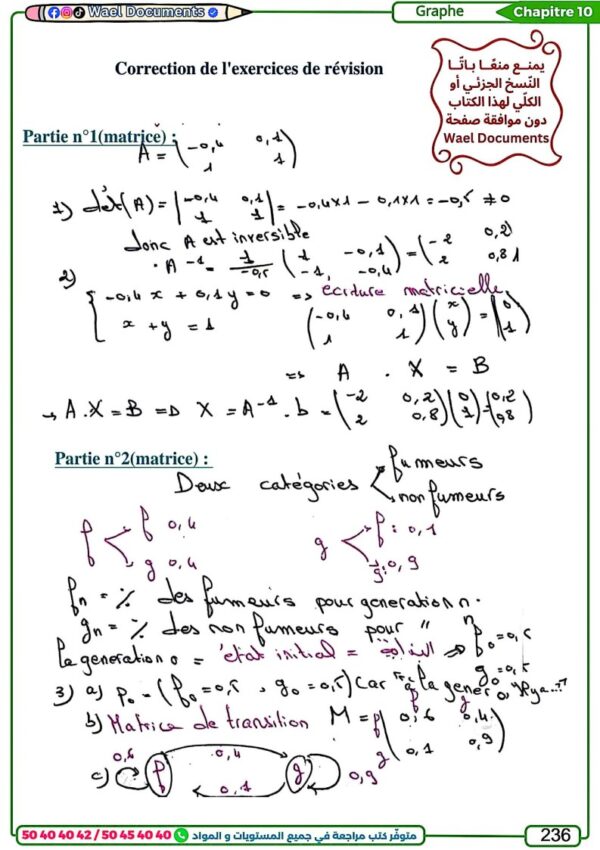 Wael Documents
Graphe
Chapitre 10
يمنع منعًا باتًا
النّسخ الجزئي أو
الكلّي لهذا الكتاب
دون موافقة صفحة
Wael Documents
Correction de l'exercices de révision
Partie n°1(matrice) :
A = (-0,4 0,1
1 1)
1) dét(A) = |-0,4 0,1
1 1| = -0,4x1 - 0,1x1 = -0,5 ≠ 0
donc A est inversible
. A⁻¹ = 1/-0,5 (1 -0,1
-1, -0,4) = (-2 0,2
2 0,81
2)
{ -0,4 x + 0,1 y = 0 => écriture matricielle
x + y = 1 (-0,4 0,1
1 1) (x
y) = (0
1)
=> A . X = B
→ A.X = B => X = A⁻¹.b = (-2 0,2
2 0,8) (0
1) = (0,2
0,8)
Partie n°2(matrice) :
Deux catégories < fumeurs
non fumeurs
f < f 0,4
g 0,4
g < f: 0,1
g: 0,9
fn = % des fumeurs pour generation n.
gn = % des non fumeurs pour " n
la generation 0 = état initial = البداية => f0 = 0,5
g0 = 0,5
3) a) P0 = (f0 = 0,5 , g0 = 0,5) car "à la gener 0, il y a..."
b) Matrice de transition M = f g
f (0,6 0,4
g 0,1 0,9)
c) 0,6 f 0,4 g 0,9
0,1
50 40 40 42 / 50 45 40 40
متوفّر كتب مراجعة في جميع المستويات و المواد
236